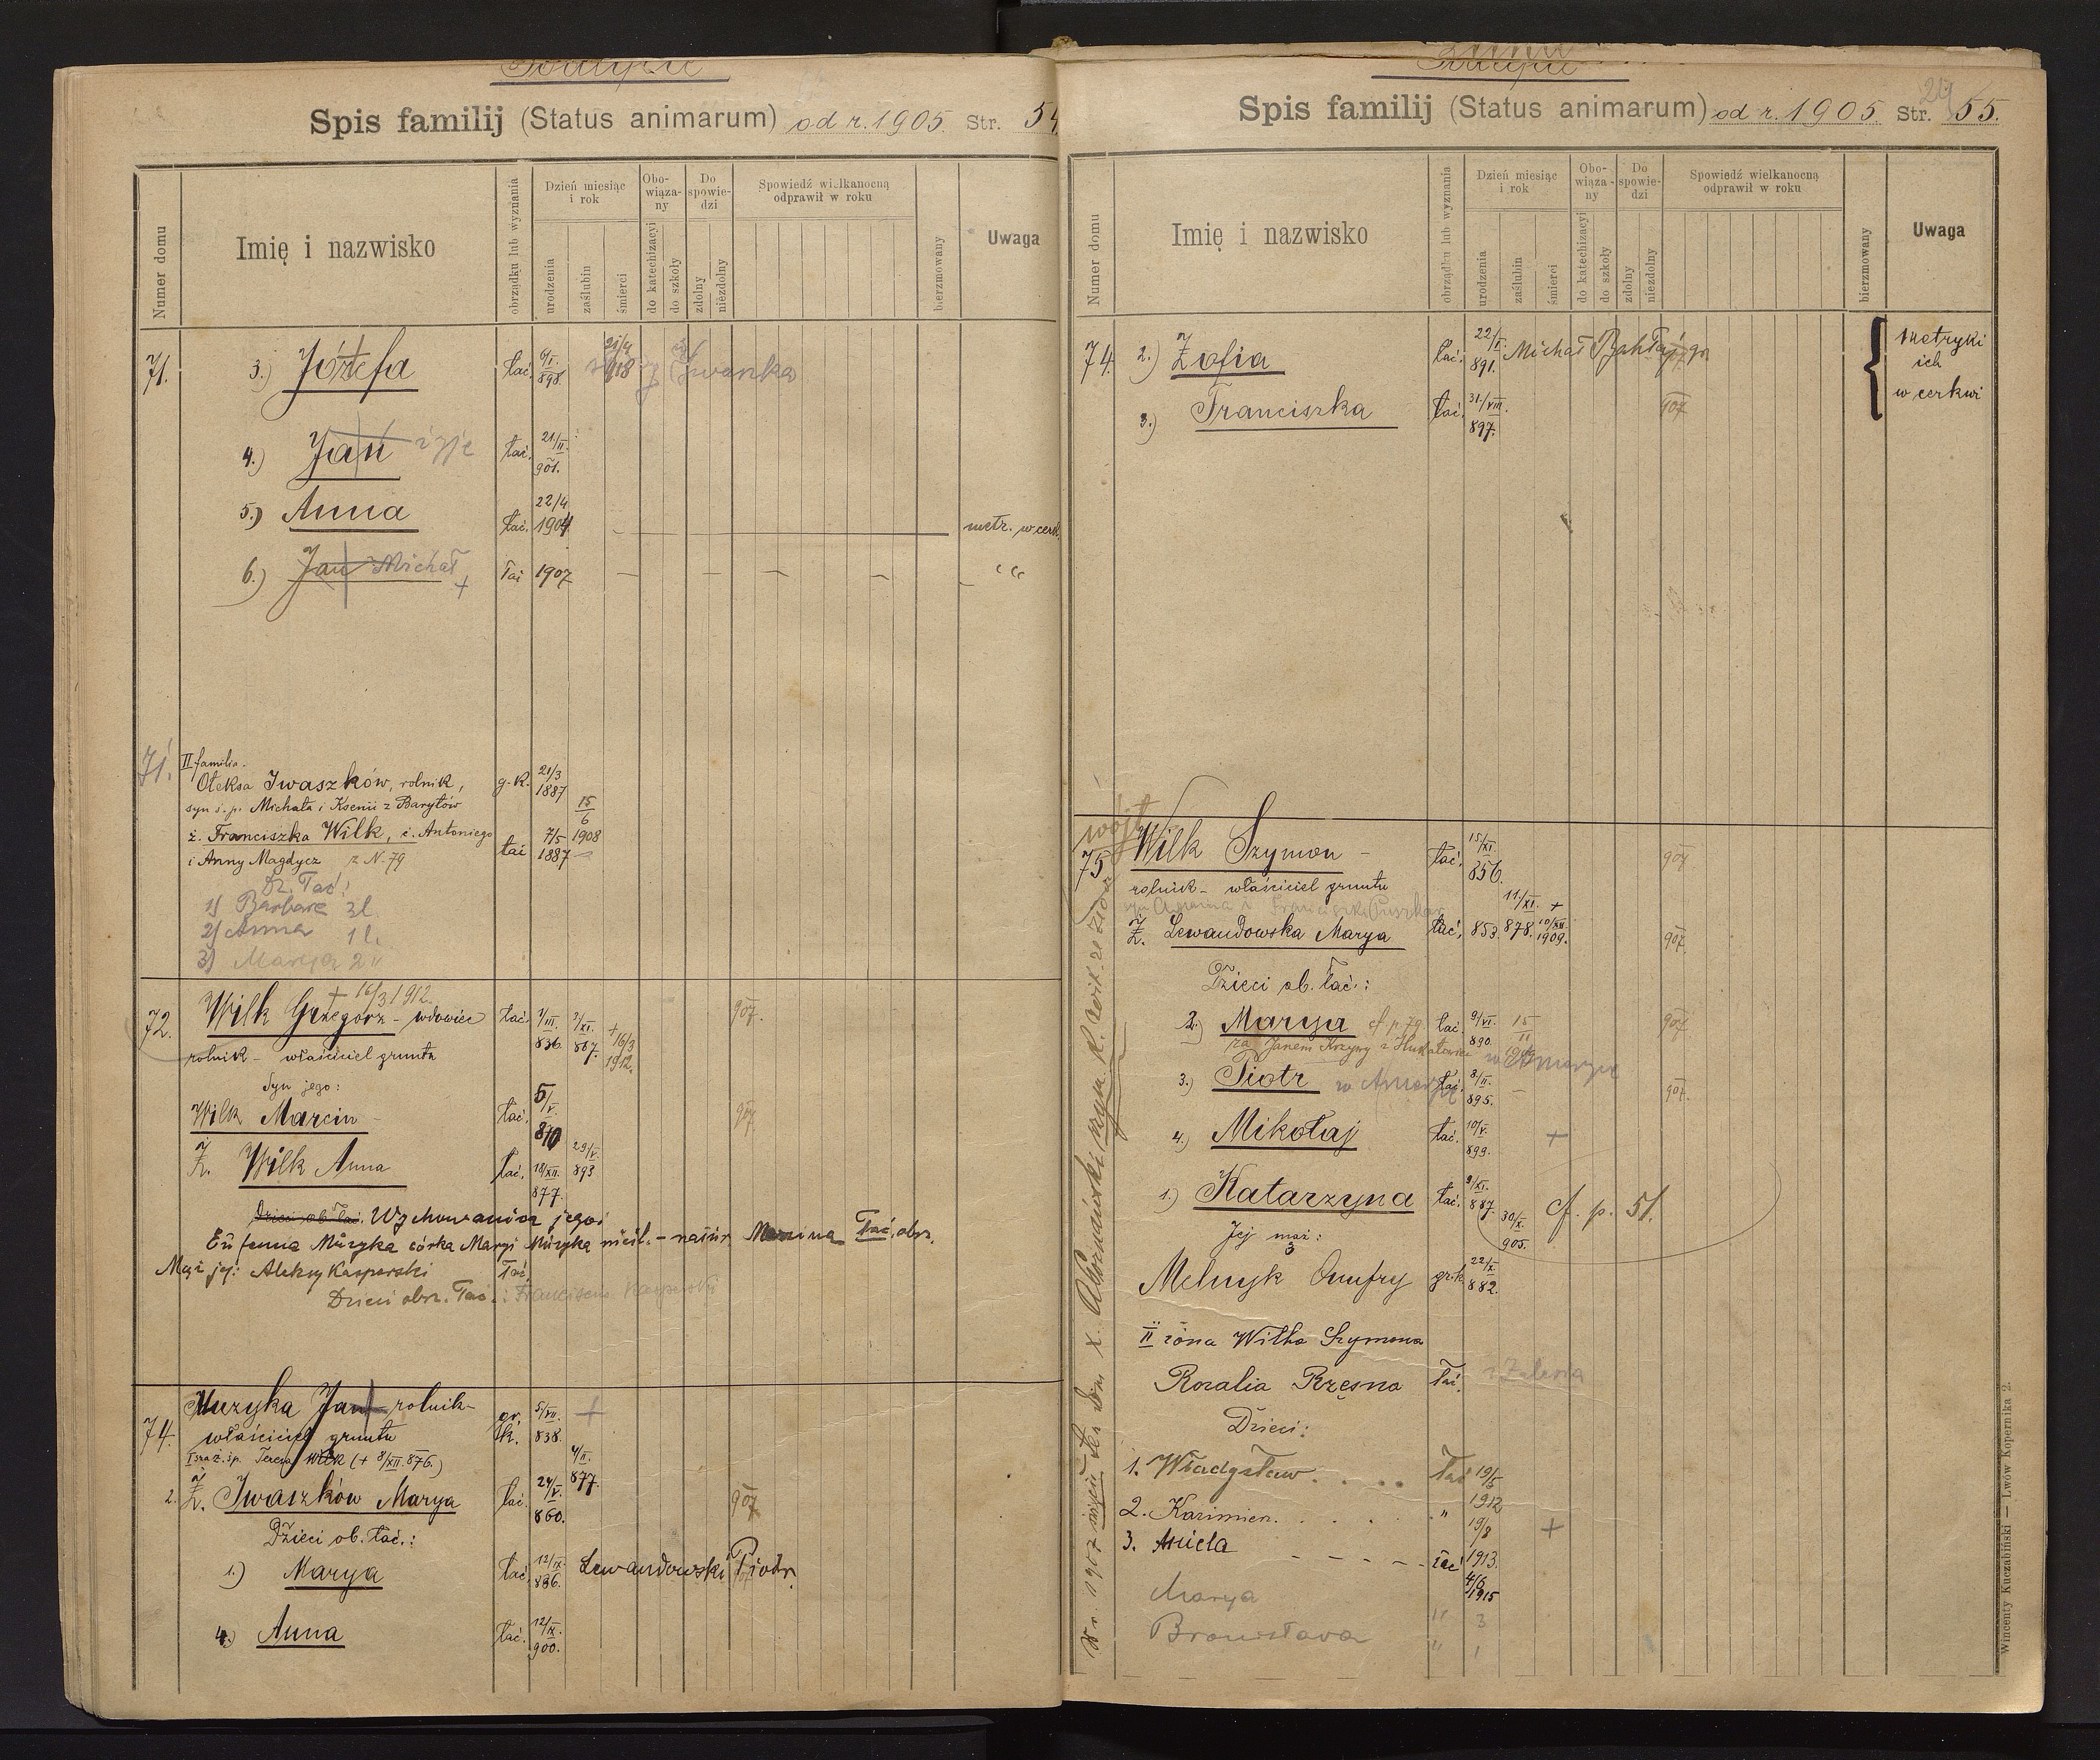 Spis familij (Status animarum) od r. 1905. Str. 54
Numer domu
Imię i nazwisko
obrządku lub wyznania
Dzień miesiąc i rok
urodzenia
zaślubin
śmierci
Obowiązany
do katechizacyi
do szkoły
Do spowiedzi
zdolny
niezdolny
Spowiedź wielkanocną odprawił w roku
bierzmowany
Uwaga
71. 3.) Józefa łać. 6/I. 898. 21/4 918 Iwanków
4.) Jan żyje łać. 21/II. 901.
5.) Anna łać. 22/4 1904 metr. w cerk.
6.) Jan Michał + łać 1907 — — — — — "
71. II familia.
Oleksa Iwaszków, rolnik, g-k. 21/3 1887
syn ś. p. Michała i Ksenii z Barytów 15/6 1908
ż. Franciszka Wilk, c. Antoniego łać 7/5 1887
i Anny Magdycz z N. 79
Dz. łać:
1) Barbara 3 l.
2) Anna 1 l.
3) Marya 2 "
+ 16/3 1912.
72. Wilk Grzegorz - wdowiec łać. 7/III. 836. 7/XI. 867. + 16/3 1912. 907.
rolnik - właściciel gruntu
Syn jego:
Wilk Marcin - łać. 5/V. 870 907
Ż. Wilk Anna łać. 18/XII. 877. 29/V. 893
Dzieci ob. łać. Wychowanica jego:
Eufemia Muzyka córka Maryi Muzyka nieśl. - łać. obr.
Mąż jej: Aleksy Kasperski łać.
Dzieci obrz. łać.: Franciszek Kasperski
74. Muzyka Jan rolnik - gr. k. 5/VII. 838. +
właściciel gruntu
I sza ż. śp. Teresa Wilk (+ 8/XII. 876.) 4/II. 877.
2. Ż. Iwaszków Marya łać. 24/V. 860. 907
Dzieci ob. łać.:
1.) Marya łać. 12/IX. 886. Lewandowski Piotr.
4.) Anna łać. 12/IX. 900.
Spis familij (Status animarum) od r. 1905. Str. 55.
Numer domu
Imię i nazwisko
obrządku lub wyznania
Dzień miesiąc i rok
urodzenia
zaślubin
śmierci
Obowiązany
do katechizacyi
do szkoły
Do spowiedzi
zdolny
niezdolny
Spowiedź wielkanocną odprawił w roku
bierzmowany
Uwaga
74. 2.) Zofia łać. 22/V. 891. Michał metryki ich w cerkwi
3.) Franciszka łać. 31/VIII. 897. 907
wójt
75 Wilk Szymon - łać. 15/XI. 856. 907
rolnik - właściciel gruntu
Ż. Lewandowska Marya łać. 853. 11/XI. 878. + 10/XII. 1909. 907
Dzieci ob. łać.:
2.) Marya cf p. 79. łać. 9/VI. 890. 15/II 907
za Janem
3.) Piotr w Ameryce łać. 8/II. 895. — 907.
4.) Mikołaj łać. 10/V. 899. +
1.) Katarzyna łać. 9/XI. 887. 30/X. 905. cf. p. 51.
Jej mąż:
Melnyk Onufry gr.k. 22/X. 882.
II żona Wilka Szymona
Rozalia Rzęsna łać. z Zalesia
Dzieci:
1. Władysław . . . . łać 19/5 1912
2. Kazimierz . . . . " 19/8 1913. +
3. Aniela - - - - - łać 4/6 1915
Marya " 3
Bronisława " 1
Wincenty Kuczabiński — Lwów Kopernika 2.